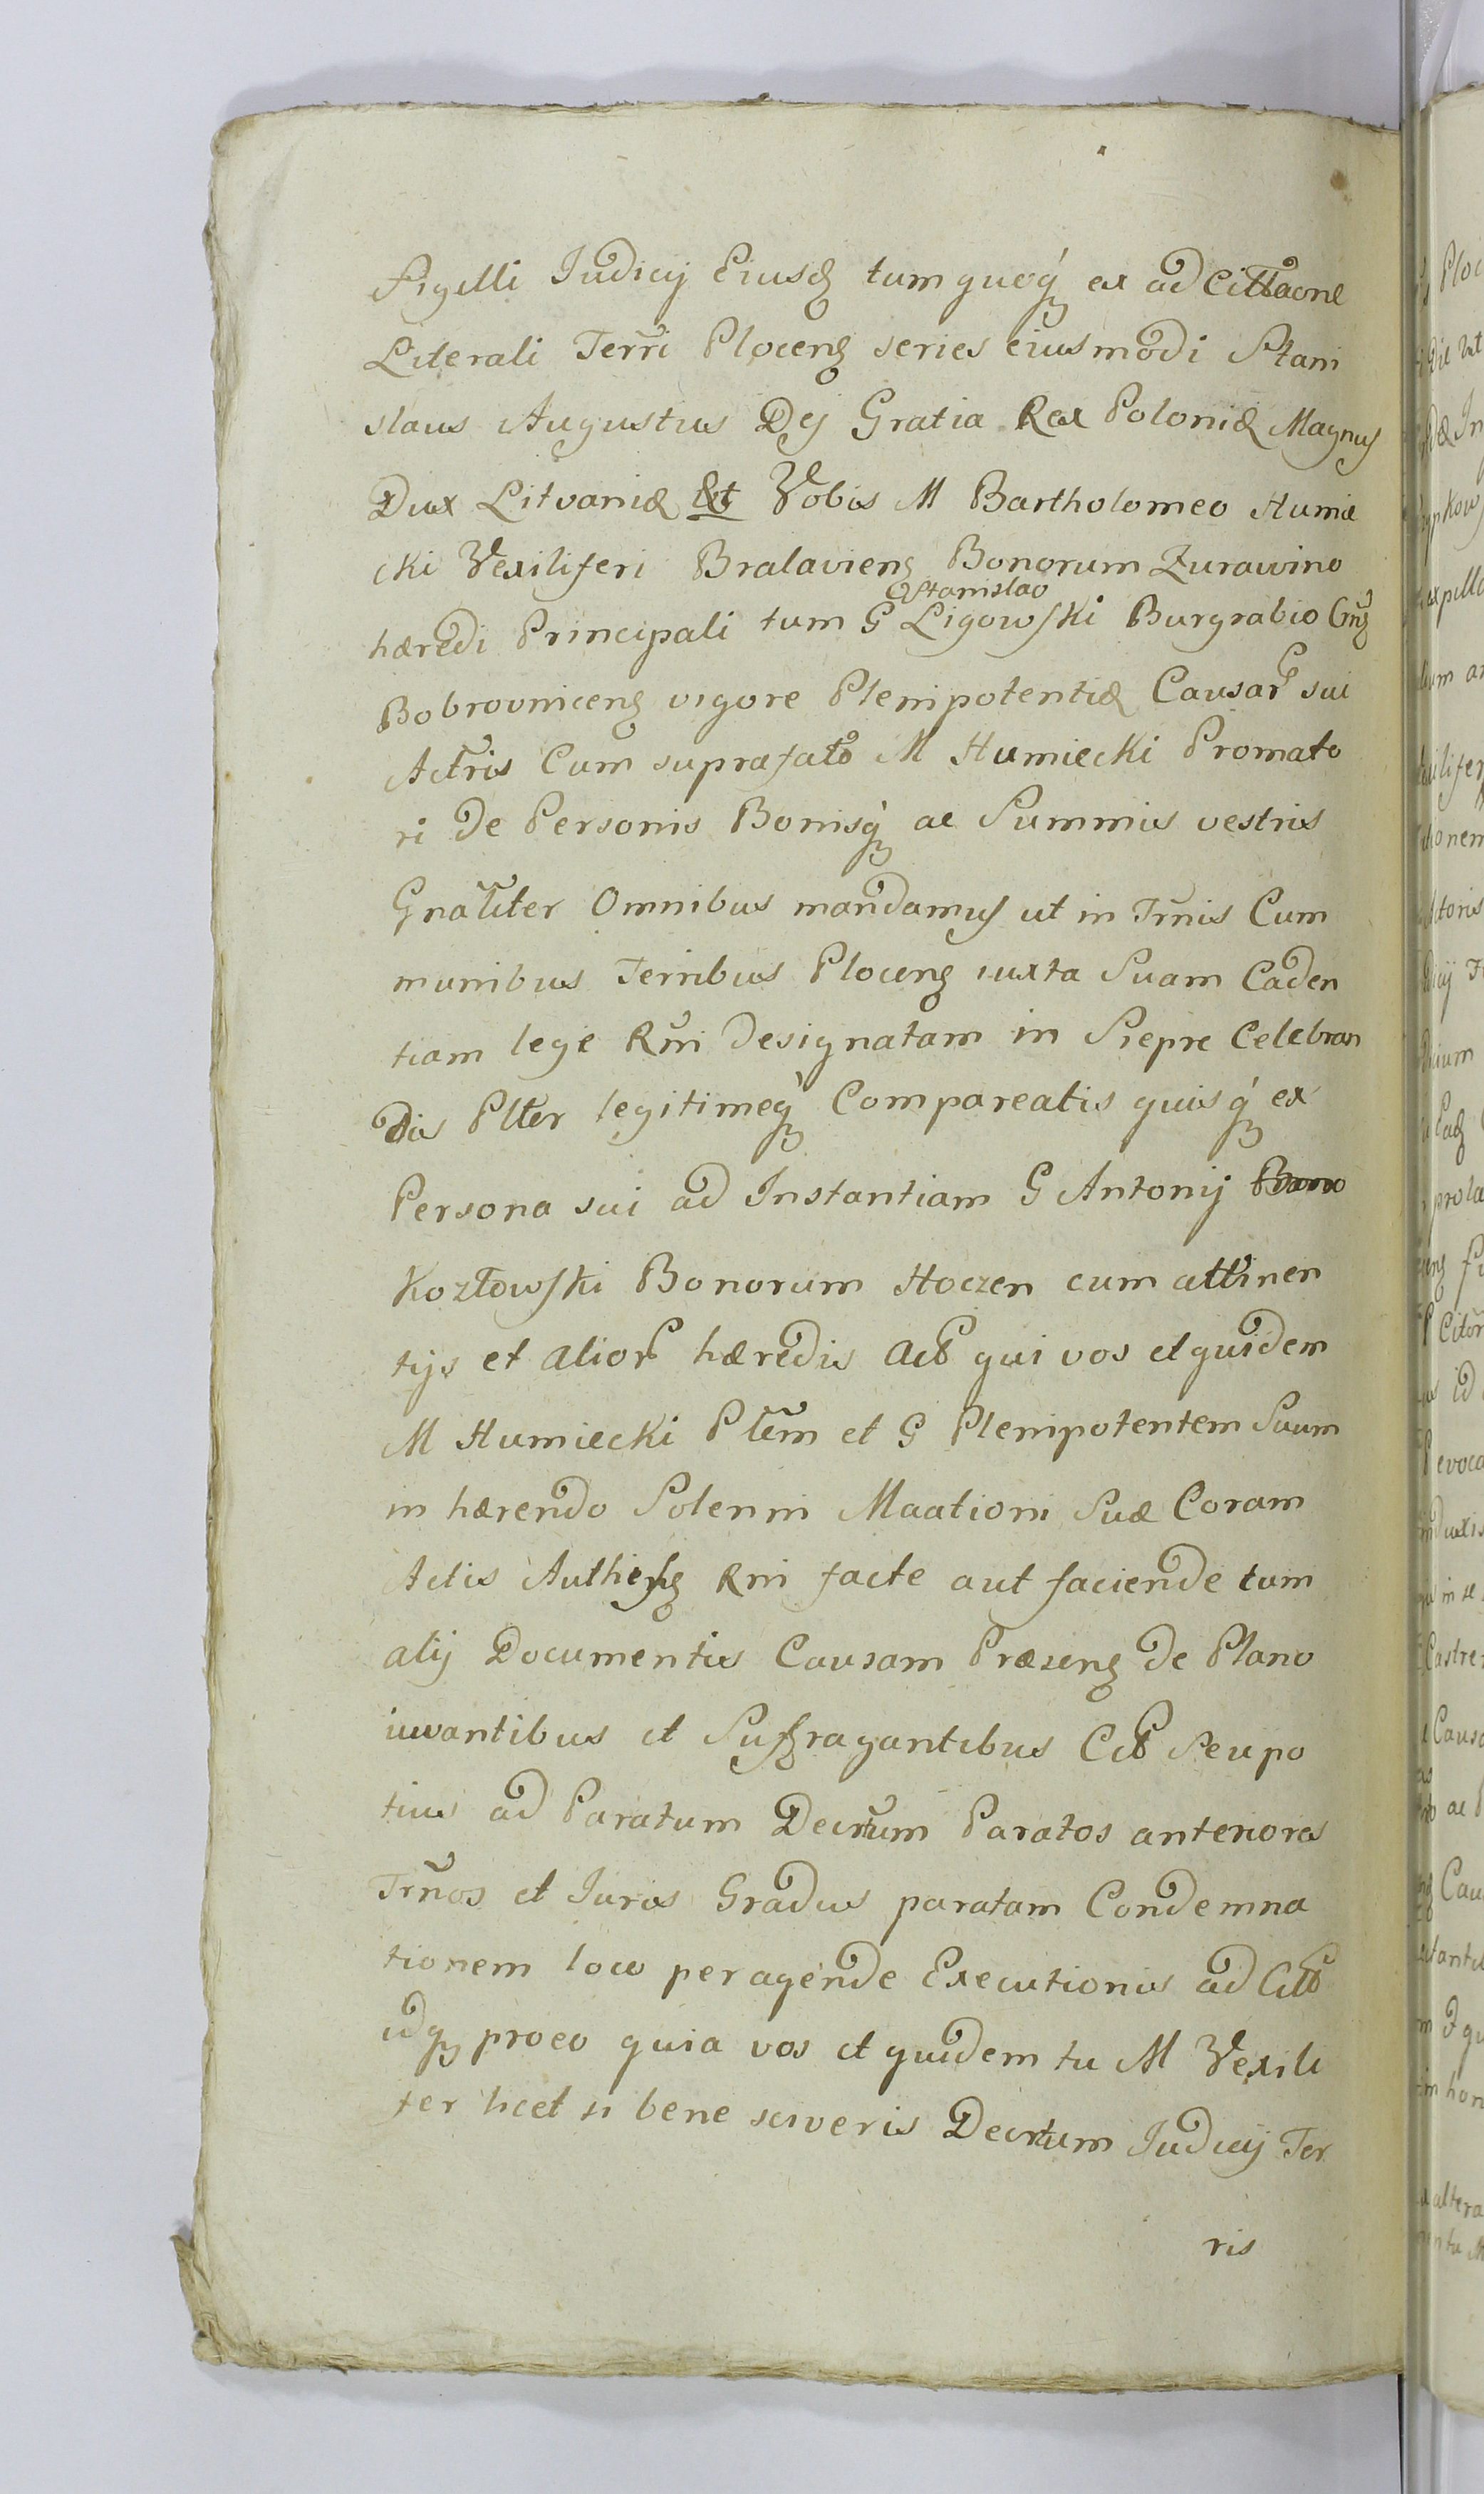 Sigilli Judicij Eiusq tum quoq ex ad Cittaone
Literali Terri Plocens series eiusmodi Stani
slaus Augustus Dej Gratia Rex Poloniæ Magnus
Dux Litvaniæ &t Vobis M Bartholomeo Humie
cki Vexiliferi Bralaviens Bonorum Zurawino
Stanislao
hæredi Principali tum G Ligowski Burgrabio
Bobrovnicens vigore Plenipotentiæ Causar sui
Actris Cum suprafato M Humiecki Promato
ri de Personis Bonisq ac Summis vestris
Gnaliter Omnibus mandamus ut in Trnis Cum
munibus Terribus Plocens iuxta Suam Caden
tiam lege Rni designatam in Siepre Celebran
dis Plter legitimeq Compareatis quisq ex
Persona sui ad Instantiam G Antonij
Kozłowski Bonorum Hoczen cum attinen
tijs et alior hæredis Act qui vos et quidem
M Humiecki Plem et G Plenipotentem Suum
in hærendo Solenni Maationi Suæ Coram
Actis Authens Rni facte aut faciende tum
alij Documentis Causam Præsens de Plano
iuvantibus et Suffragantibus Cit Seu po
tius ad Paratum Decrtum Paratos anteriores
Trnos et Juris Gradus paratam Condemna
tionem loco peragende Executionis ad Citt
idq proeo quia vos et quidem tu M Vexili
fer licet si bene sciveris Decrtum Judicij Ter
ris